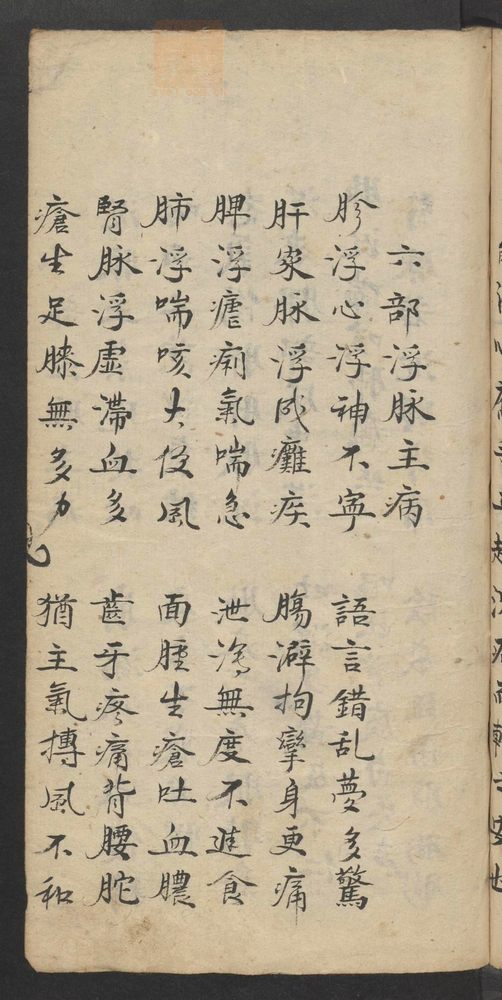 六部浮脉主病
胗浮心浮神不寧 語言錯乱夢多驚
肝家脉浮成癱疾 腸澼拘攣身更痛
脾浮瘧痢氣喘急 泄瀉無度不進食
肺浮喘咳大伇風 面腫生瘡吐血膿
腎脉浮虛滯血多 齒牙疼痛背腰脡
瘡生足膝無多力 猶主氣摶風不和